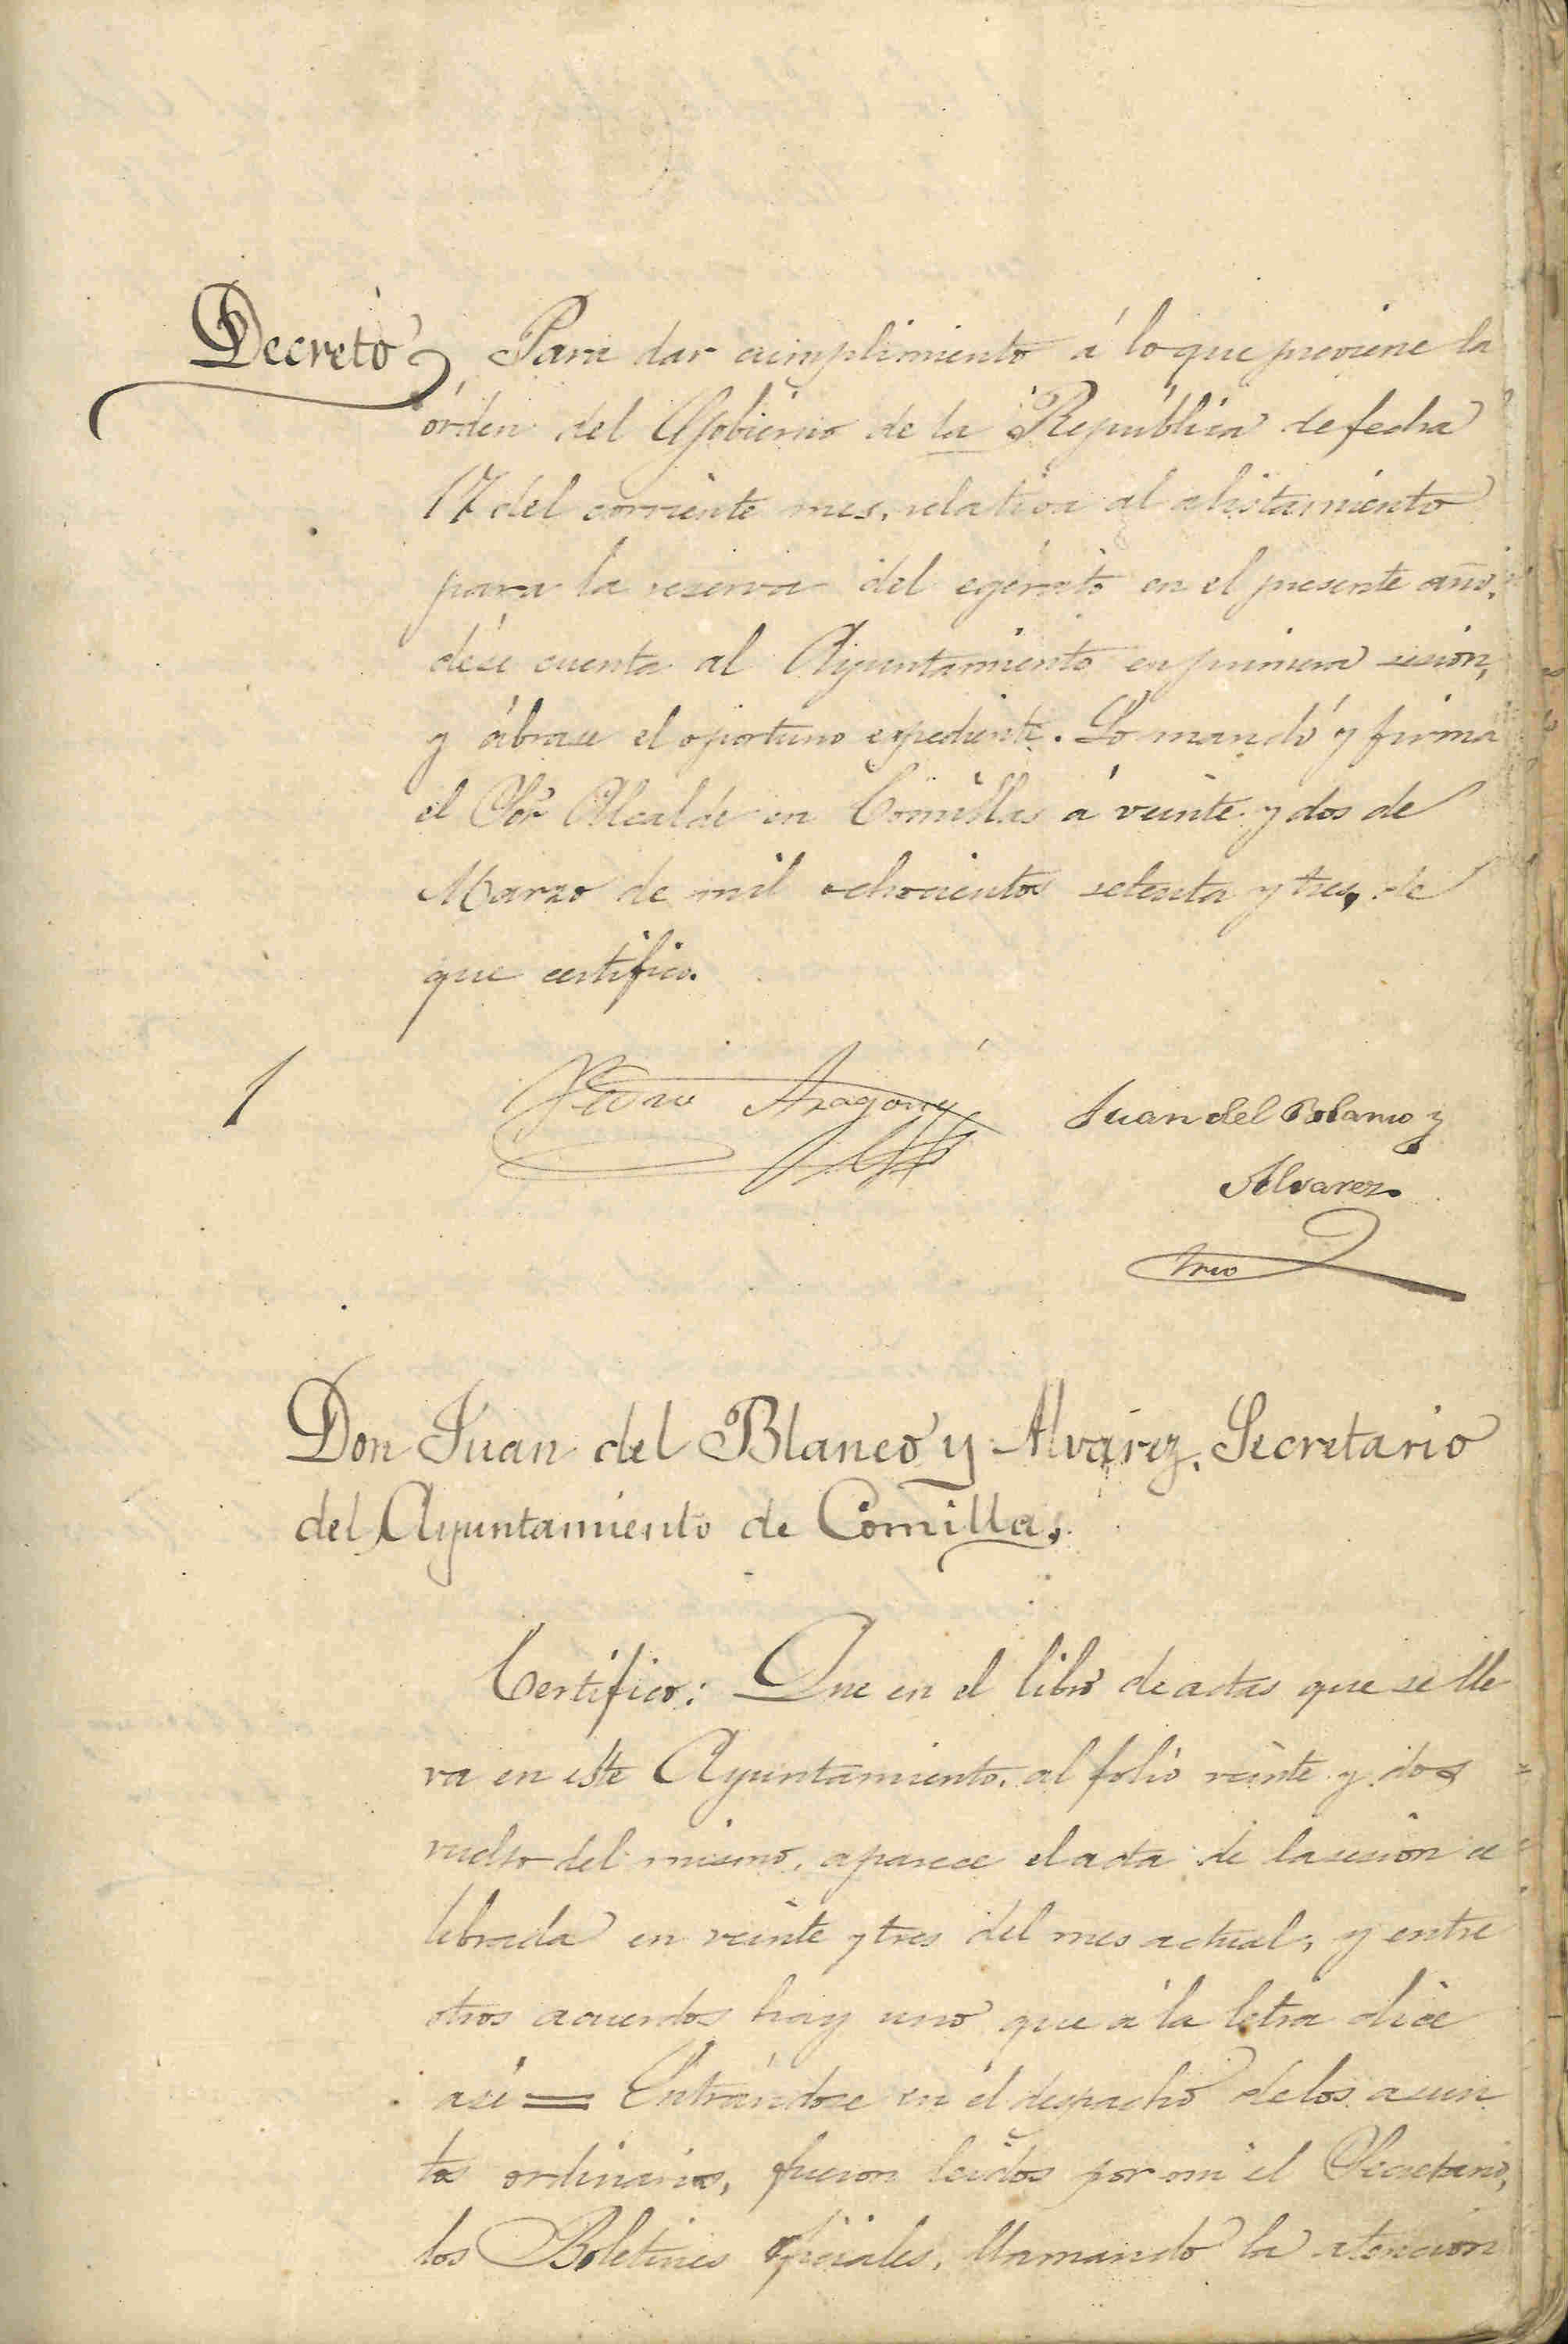 Decreto, Para dar cumplimiento á lo que previene la
órden del Gobierno de la República de fecha
17 del corriente mes, relativa al alistamiento
para la reserva del egército en el presente año,
dése cuenta al Ayuntamiento en primera sesion,
y ábrase el oportuno expediente. Lo mandó y firma
el Sor Alcalde en Comillas á veinte y dos de
Marzo de mil ochocientos setenta y tres, de
que certifico.
Pedro Aragon Juan del Blanco y
Alvarez.
Srio
Don Juan del Blanco y Alvarez, Secretario
del Ayuntamiento de Comillas.
Certifico: Que en el libro de actas que se lle
va en este Ayuntamiento, al folio veinte y dos
vuelto del mismo, aparece el acta de la sesion ce
lebrada en veinte y tres del mes actual, y entre
otros acuerdos hay uno que á la letra dice
asi = Entrándose en el despacho de los asun
tos ordinarios, fueron leidos por mi el Secretario,
los Boletines oficiales, llamando la atencion